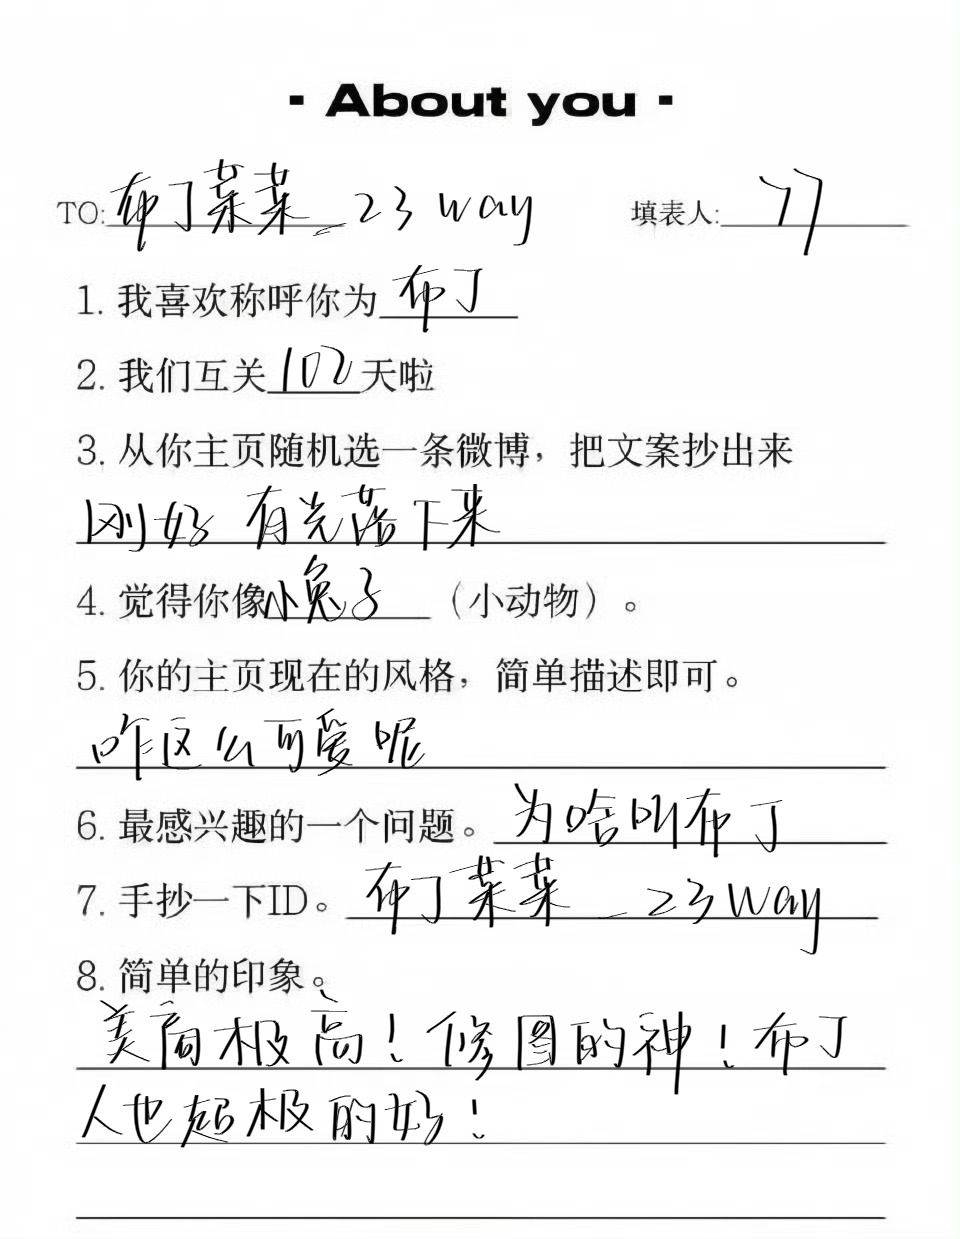 - About you -
TO: 布丁菜菜_23way 填表人: 77
1. 我喜欢称呼你为布丁
2. 我们互关102天啦
3. 从你主页随机选一条微博，把文案抄出来
刚好 有光落下来
4. 觉得你像小兔子（小动物）。
5. 你的主页现在的风格，简单描述即可。
咋这么可爱呢
6. 最感兴趣的一个问题。为啥叫布丁
7. 手抄一下ID。布丁菜菜_23way
8. 简单的印象。
美商极高！修图的神！布丁
人也超极的好！